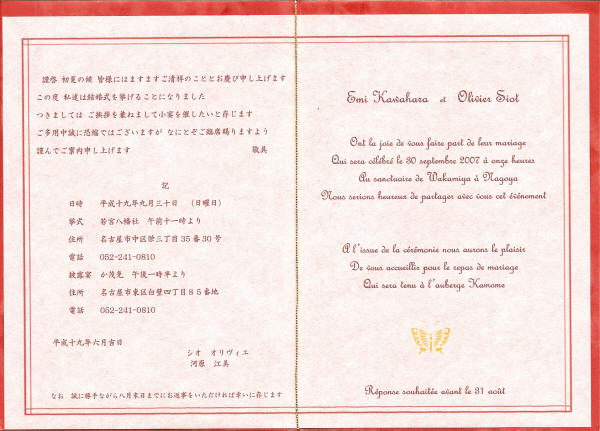 謹啓 初夏の候 皆様にはますますご清祥のこととお慶び申し上げます
この度 私達は結婚式を挙げることになりました
つきましては ご挨拶を兼ねまして小宴を催したいと存じます
ご多用中誠に恐縮ではございますが なにとぞご臨席賜りますよう
謹んでご案内申し上げます 敬具
記
日時 平成十九年九月三十日 (日曜日)
挙式 若宮八幡社 午前十一時より
住所 名古屋市中区栄三丁目35番30号
電話 052-241-0810
披露宴 か茂免 午後一時半より
住所 名古屋市東区白壁四丁目85番地
電話 052-241-0810
平成十九年六月吉日
シオ オリヴィエ
河原 江美
なお、誠に勝手ながら八月末日までにお返事をいただければ幸いに存じます
Emi Kawahara et Olivier Siot
Ont la joie de vous faire part de leur mariage
Qui sera célébré le 30 septembre 2007 à onze heures
Au sanctuaire de Wakamiya à Nagoya
Nous serions heureux de partager avec vous cet événement
A l'issue de la cérémonie nous aurons le plaisir
De vous accueillir pour le repas de mariage
Qui sera tenu à l'auberge Kamome
Réponse souhaitée avant le 31 août